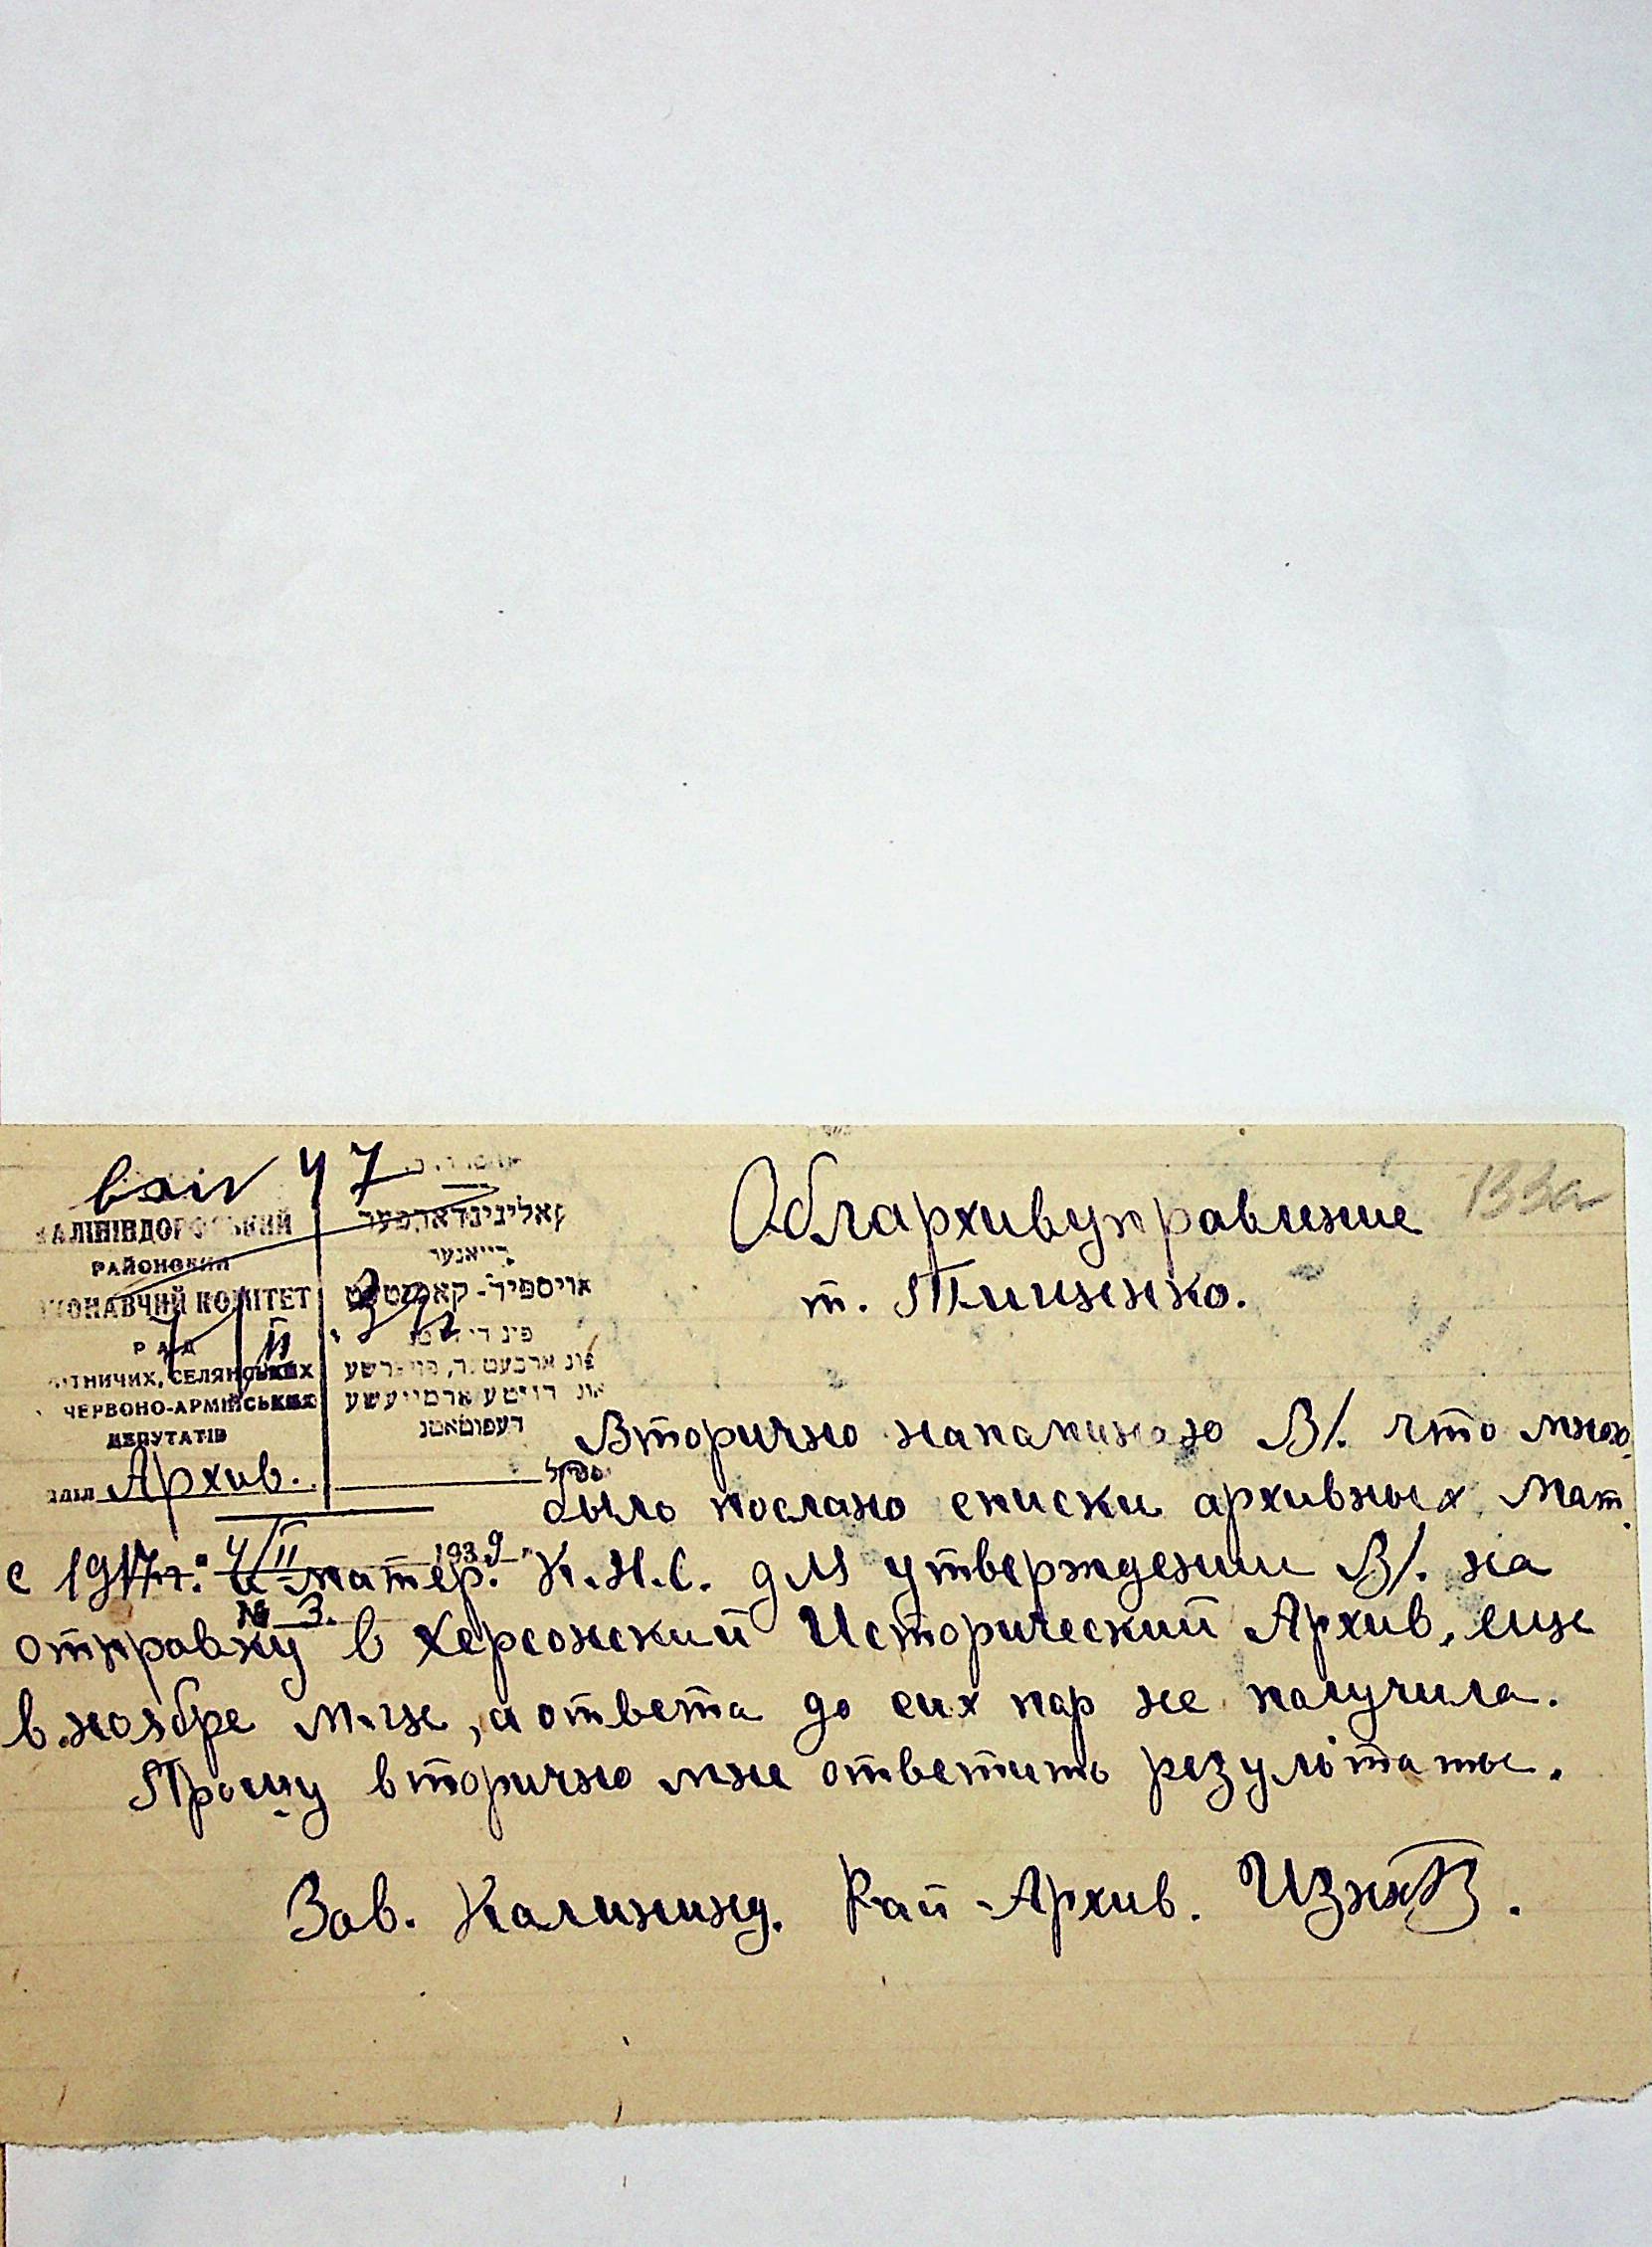 47
133а
КАЛІНІНДОРФСЬКИЙ
РАЙОНОВИЙ
КОНАВЧИЙ КОМІТЕТ
РАД
ІТНИЧИХ, СЕЛЯНСЬКИХ
ЧЕРВОНО-АРМІЙСЬКИХ
ДЕПУТАТІВ
ДІЛ Архив.
4/II 1939
№ 3.
קאלינינדארפער
רייאנער
אויספיר-קאמיטעט
רויטע ארמייעשע
דעפוטאטן
Облархивуправление
т. Тищенко.
Вторично напаминаю В/. что мною
было послано списки архивных мат.
с 1917г. и матер. К.Н.С. для утверждении В/. на
отправку в Херсонский Исторический Архив, еще
в ноябре м-це, а ответа до сих пар не палучила.
Прошу вторично мне ответить результаты.
Зав. Калининд. Рай-Архив.